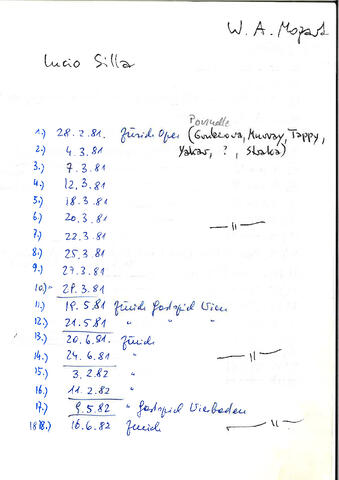 W. A. Mozart
Lucio Silla
Ponnelle
1.) 28.2.81. Zürich Oper (Gruberova, Murray, Tappy,
2.) 4.3.81 Yakar, ?, Shaka)
3.) 7.3.81
4.) 12.3.81
5.) 18.3.81
6.) 20.3.81 —"—
7.) 22.3.81
8.) 25.3.81
9.) 27.3.81
10.) 29.3.81
11.) 19.5.81 Zürich Gastspiel Wien
12.) 21.5.81 " " "
13.) 20.6.81. Zürich
14.) 24.6.81 " —"—
15.) 3.2.82 "
16.) 11.2.82 "
17.) 9.5.82 " Gastspiel Wiesbaden
18.) 16.6.82 Zürich —"—